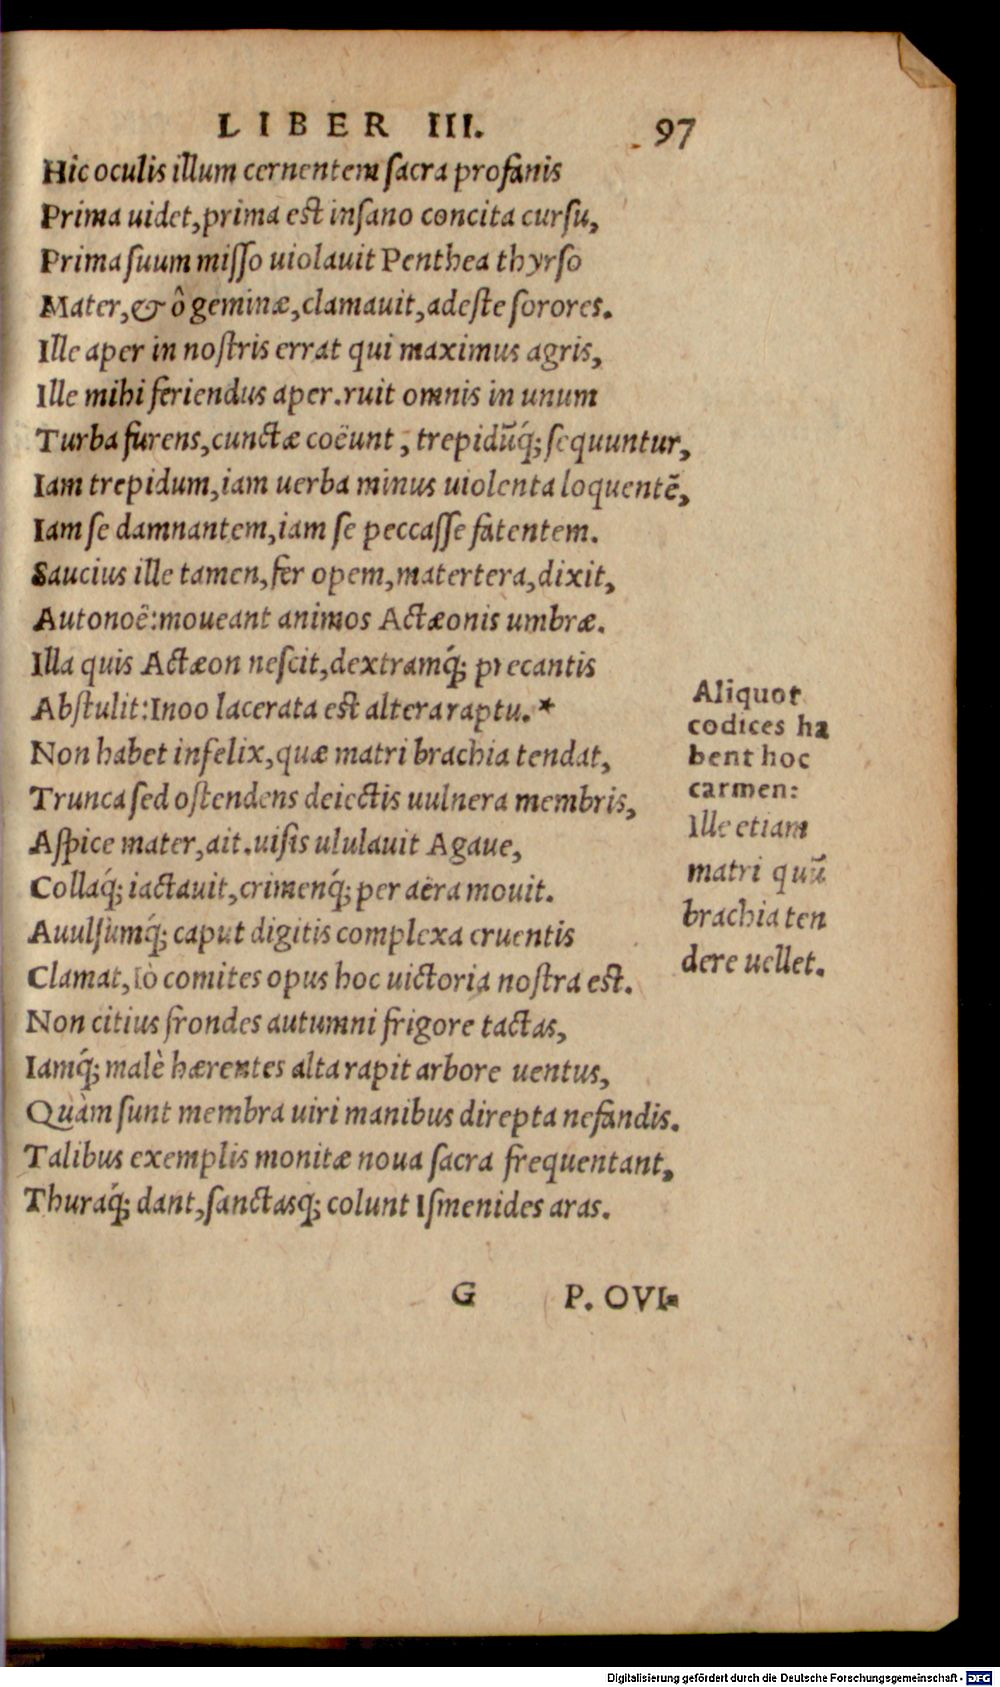 LIBER III. 97
Hic oculis illum cernentem ſacra profanis
Prima uidet, prima est inſano concita curſu,
Prima ſuum miſſo uiolauit Penthea thyrſo
Mater, & ô geminæ, clamauit, adeſte ſorores.
Ille aper in noſtris errat qui maximus agris,
Ille mihi feriendus aper. ruit omnis in unum
Turba furens, cunctæ coëunt, trepidũq́; ſequuntur,
Iam trepidum, iam uerba minus uiolenta loquentẽ,
Iam ſe damnantem, iam ſe peccaſſe fatentem.
Saucius ille tamen, fer opem, matertera, dixit,
Autonoë: moueant animos Actæonis umbræ.
Illa quis Actæon neſcit, dextramq́; precantis
Abſtulit: Inoo lacerata est altera raptu. *
Non habet infelix, quæ matri brachia tendat,
Trunca ſed oſtendens deiectis uulnera membris,
Aſpice mater, ait. uiſis ululauit Agaue,
Collaq́; iactauit, crimenq́; per aëra mouit.
Auulſumq́; caput digitis complexa cruentis
Clamat, Iò comites opus hoc uictoria noſtra est.
Non citius frondes autumni frigore tactas,
Iamq́; malè hærentes alta rapit arbore uentus,
Quàm ſunt membra uiri manibus direpta nefandis.
Talibus exemplis monitæ noua ſacra frequentant,
Thuraq́; dant, ſanctasq́; colunt Iſmenides aras.
Aliquot
codices ha
bent hoc
carmen:
Ille etiam
matri quũ
brachia ten
dere uellet.
G P. OVI-
Digitalisierung gefördert durch die Deutsche Forschungsgemeinschaft - DFG